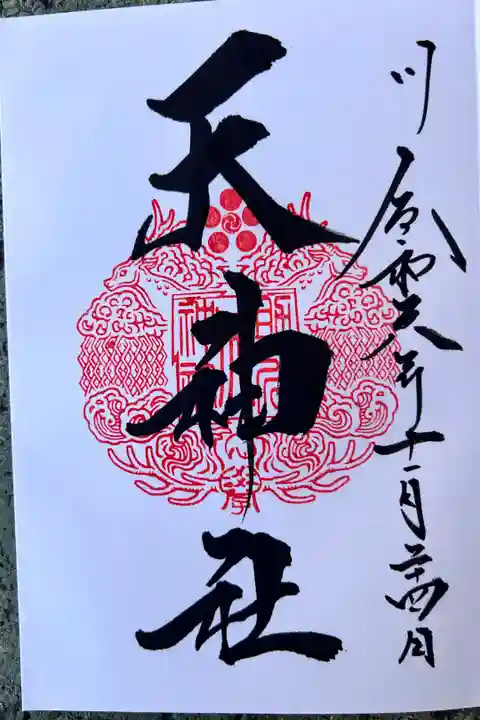 川 令和六年十一月廿四日
天神社